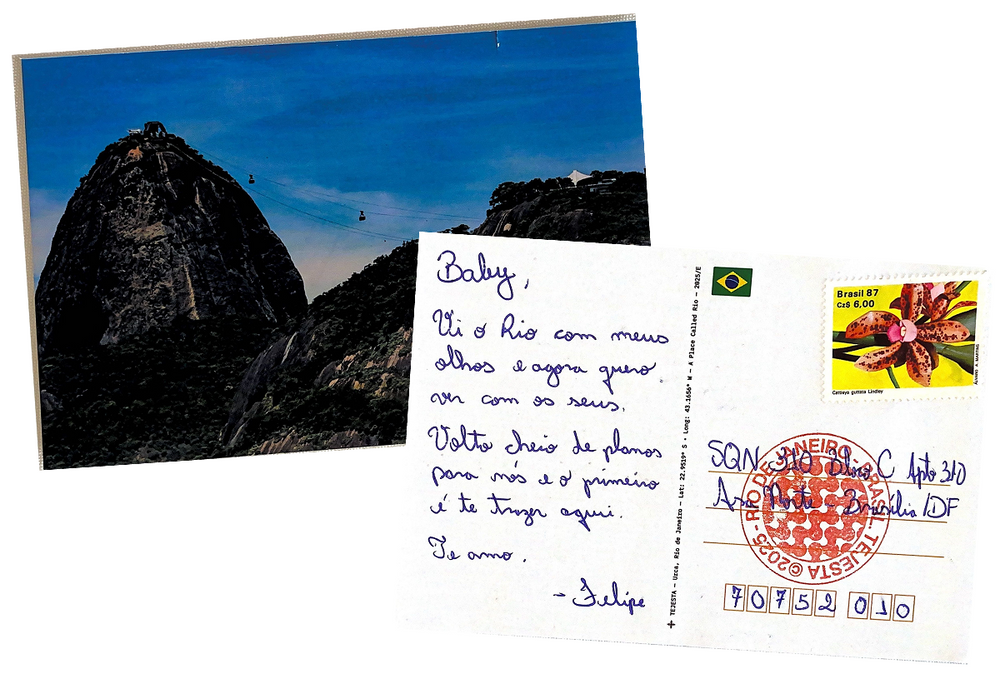 Baby,
Vi o Rio com meus
olhos e agora quero
ver com os seus.
Volto cheio de planos
para nós e o primeiro
é te trazer aqui.
Te amo.
- Felipe
+ TEJESTA – Urca, Rio de Janeiro – Lat: 22.9519° S • Long: 43.1656° W – A Place Called Rio – 2025/E
Brasil 87
Cz$ 6,00
Catleya guttata Lindley
ÁLVARO A. MARTINS
SQN 310 Bloco C Apto 310
Asa Norte - Brasília/DF
RIO DE JANEIRO - BRASIL. TEJESTA ©2025 -
70752 010